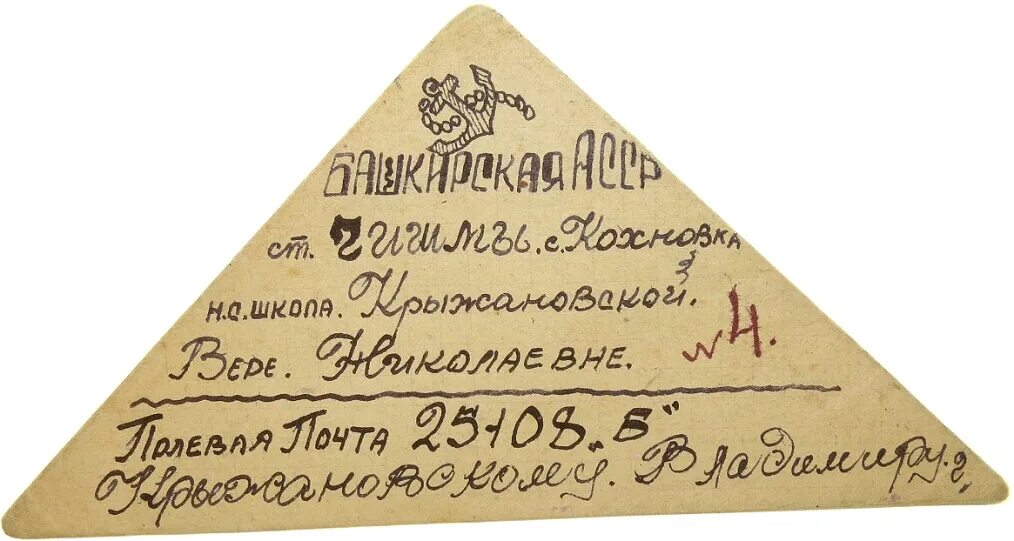 БАШКИРСКАЯ АССР
ст. ЧИШМЫ. с. КОХНОВКА
н.с. школа. Крыжановской.
Вере. Николаевне.
№ 4.
Полевая Почта 25108 „Б"
Крыжановскому. Владимиру. г.